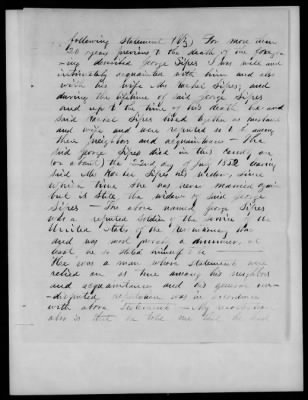 following statement (viz) For more than
20 years previous to the death of the forego-
ing described George Sipes I was well and
intimately acquainted with him and also
with his wife Mrs Rachel Sipes, and
during the lifetime of said George Sipes
and up to the time of his death he and
said Rachel Sipes lived together as husband
and wife and were reputed so to be among
their neighbors and acquaintances - The
said George Sipes died in this county on
(or about) the 22nd day of July 1852 leaving
said Mrs Rachel Sipes his widow, since
which time she has never married again
but is still the widow of said George
Sipes - The above named George Sipes
was a reputed soldier in the service of the
United States of the Revolutionary War
and was most probably a drummer, at
least he so stated himself to be
He was a man whose statements were
relied on as true among his neighbors
and acquaintances and his general un-
disputed reputation was in accordance
with above statement - My recollection
also is that he told me that he had